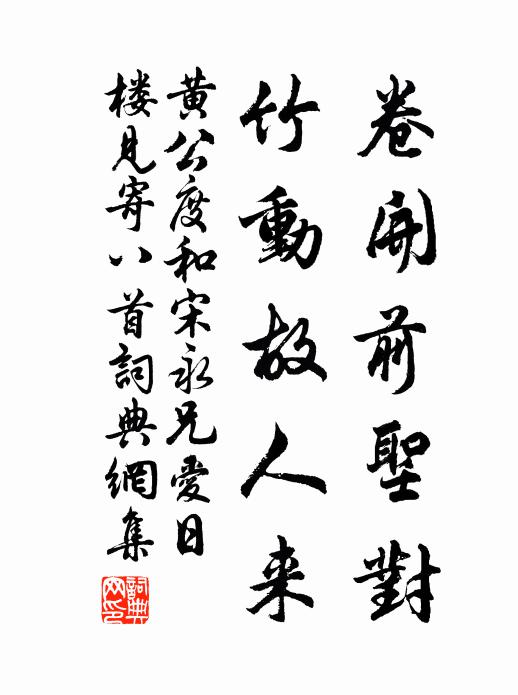 卷開前聖對
竹動故人来
黄公度和宋永兄愛日
楼見寄八首詞典網集
詞典网印